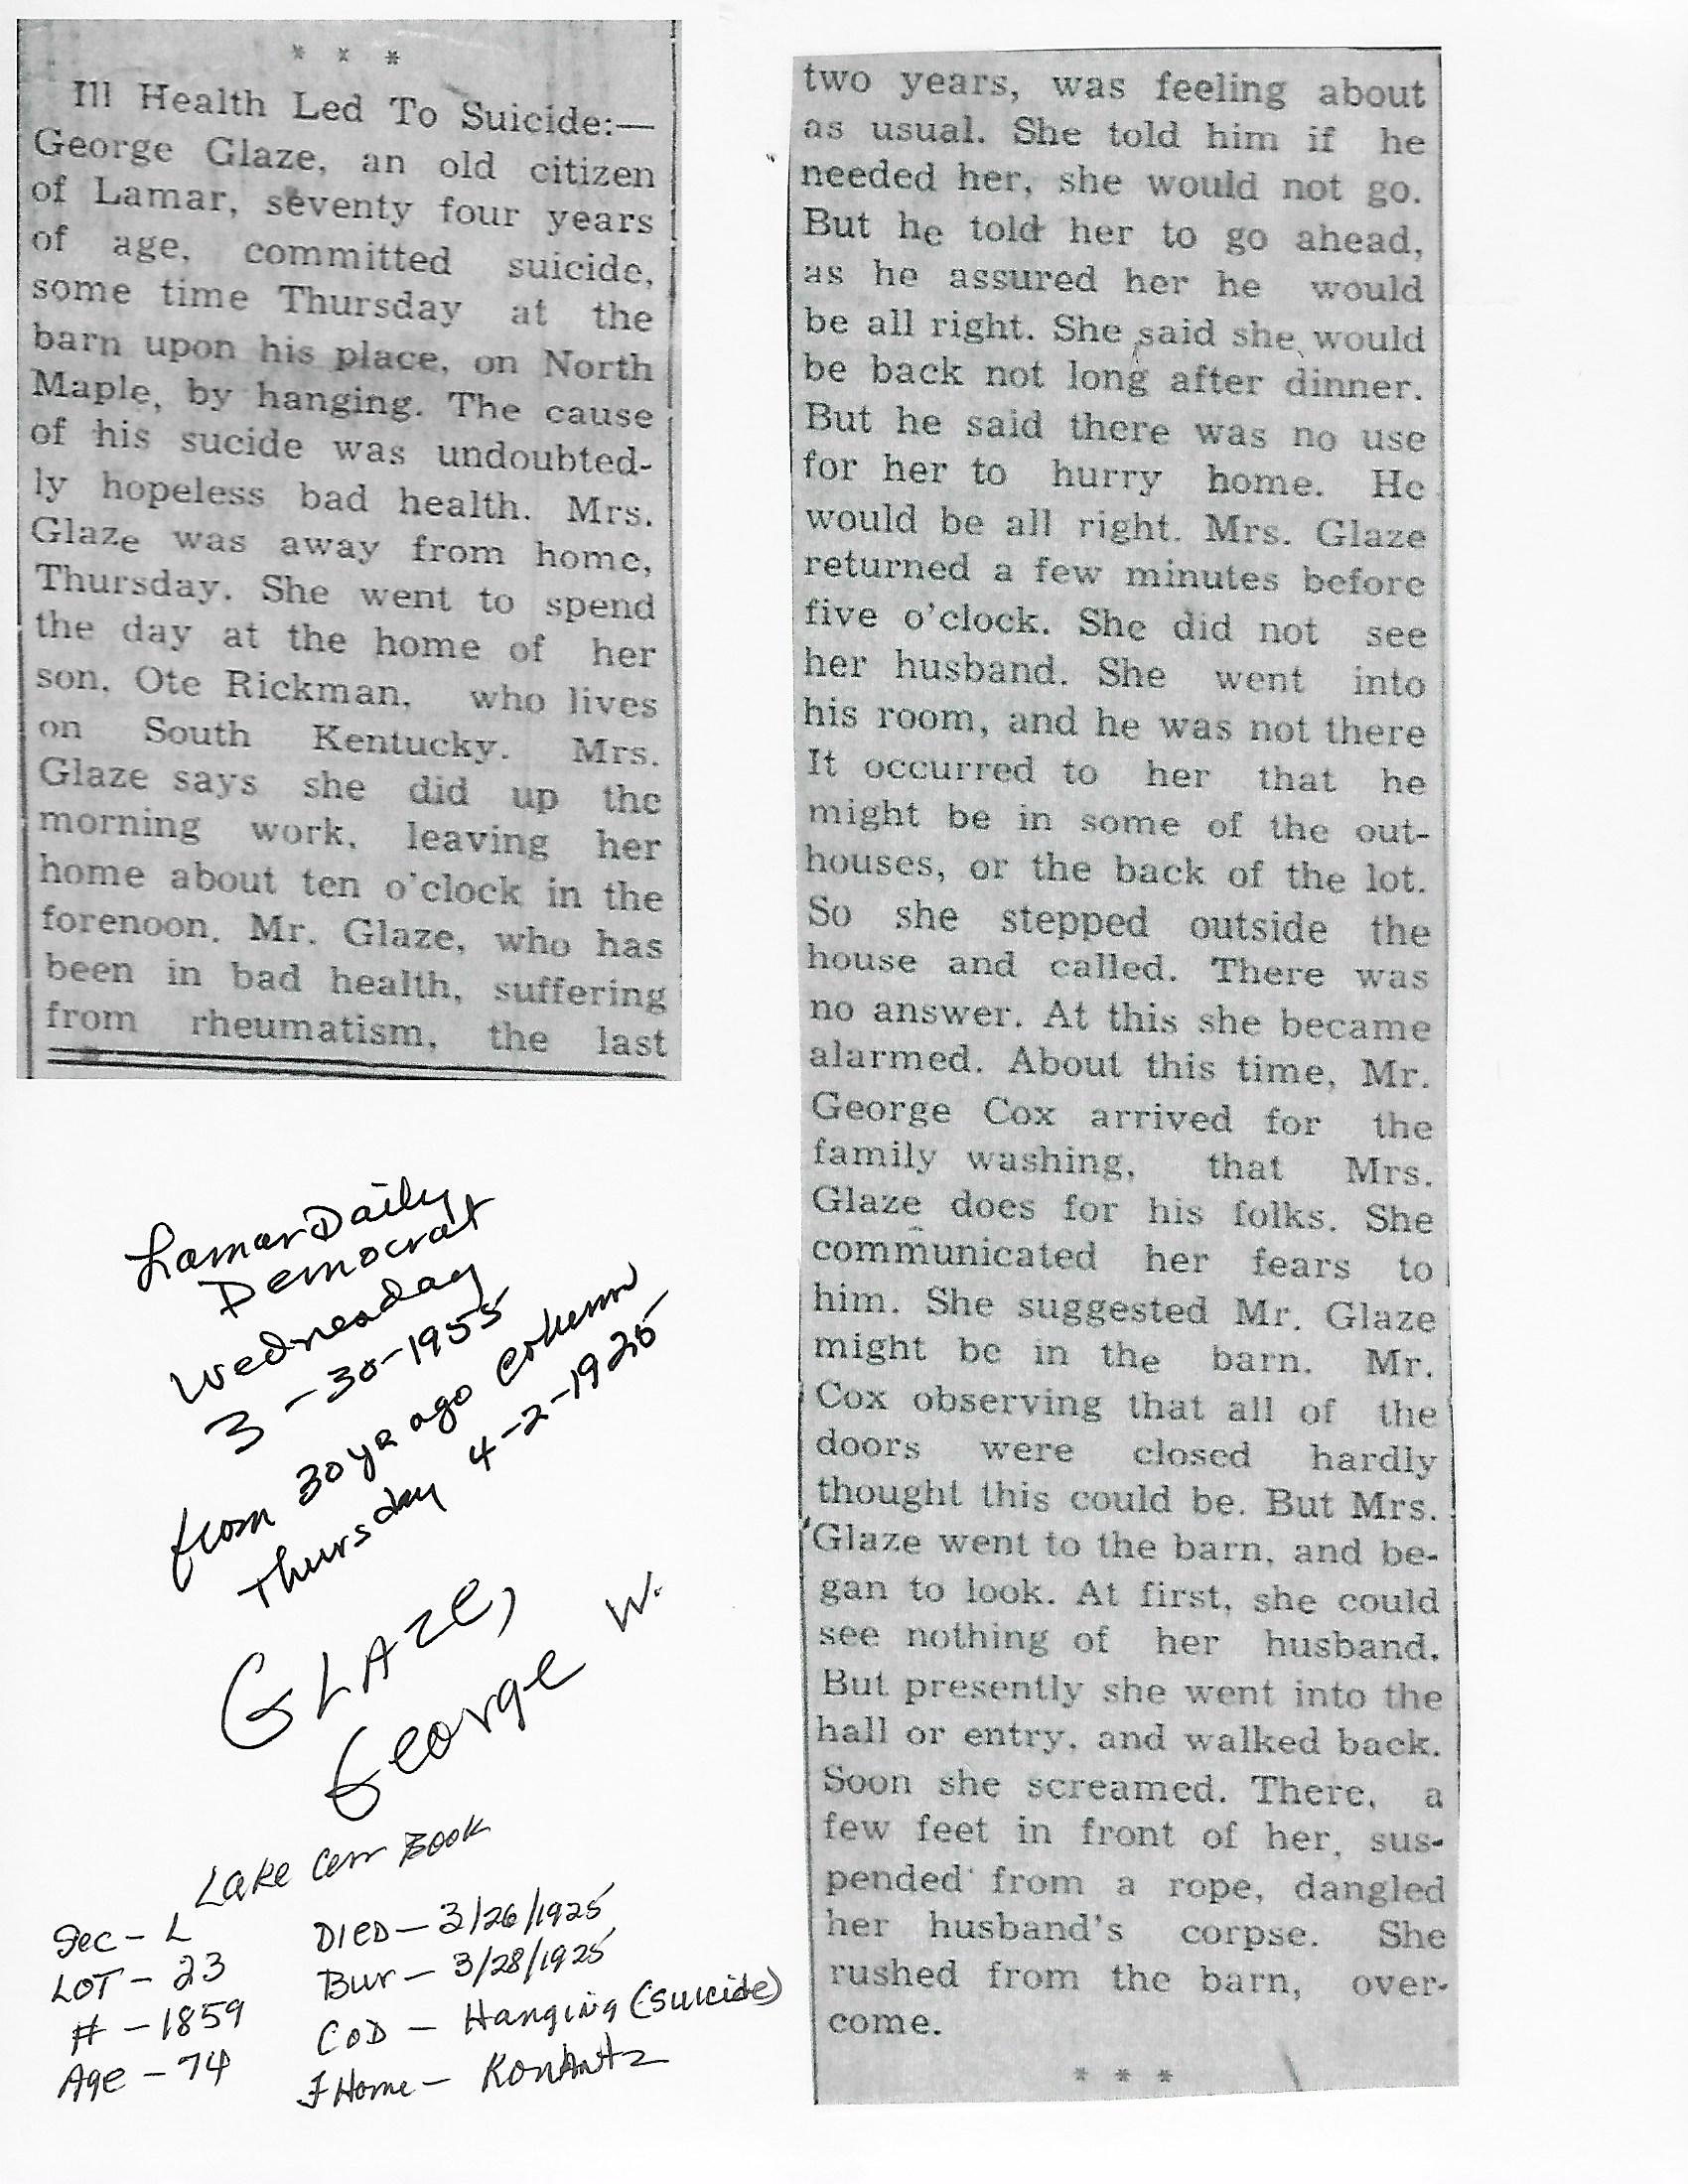 * * *
Ill Health Led To Suicide:—
George Glaze, an old citizen
of Lamar, seventy four years
of age, committed suicide,
some time Thursday at the
barn upon his place, on North
Maple, by hanging. The cause
of his sucide was undoubted-
ly hopeless bad health. Mrs.
Glaze was away from home,
Thursday. She went to spend
the day at the home of her
son, Ote Rickman, who lives
on South Kentucky. Mrs.
Glaze says she did up the
morning work, leaving her
home about ten o'clock in the
forenoon. Mr. Glaze, who has
been in bad health, suffering
from rheumatism, the last
two years, was feeling about
as usual. She told him if he
needed her, she would not go.
But he told her to go ahead,
as he assured her he would
be all right. She said she would
be back not long after dinner.
But he said there was no use
for her to hurry home. He
would be all right. Mrs. Glaze
returned a few minutes before
five o'clock. She did not see
her husband. She went into
his room, and he was not there
It occurred to her that he
might be in some of the out-
houses, or the back of the lot.
So she stepped outside the
house and called. There was
no answer. At this she became
alarmed. About this time, Mr.
George Cox arrived for the
family washing, that Mrs.
Glaze does for his folks. She
communicated her fears to
him. She suggested Mr. Glaze
might be in the barn. Mr.
Cox observing that all of the
doors were closed hardly
thought this could be. But Mrs.
Glaze went to the barn, and be-
gan to look. At first, she could
see nothing of her husband.
But presently she went into the
hall or entry, and walked back.
Soon she screamed. There, a
few feet in front of her, sus-
pended from a rope, dangled
her husband's corpse. She
rushed from the barn, over-
come.
* * *
Lamar Daily
Democrat
Wednesday
3-30-1955
from 30 yr ago column
Thursday 4-2-1925
GLAZE,
George W.
Lake Cem Book
Sec - L
LOT - 23
# - 1859
Age - 74
DIED - 3/26/1925
Bur - 3/28/1925
COD - Hanging (suicide)
F Home - Konantz